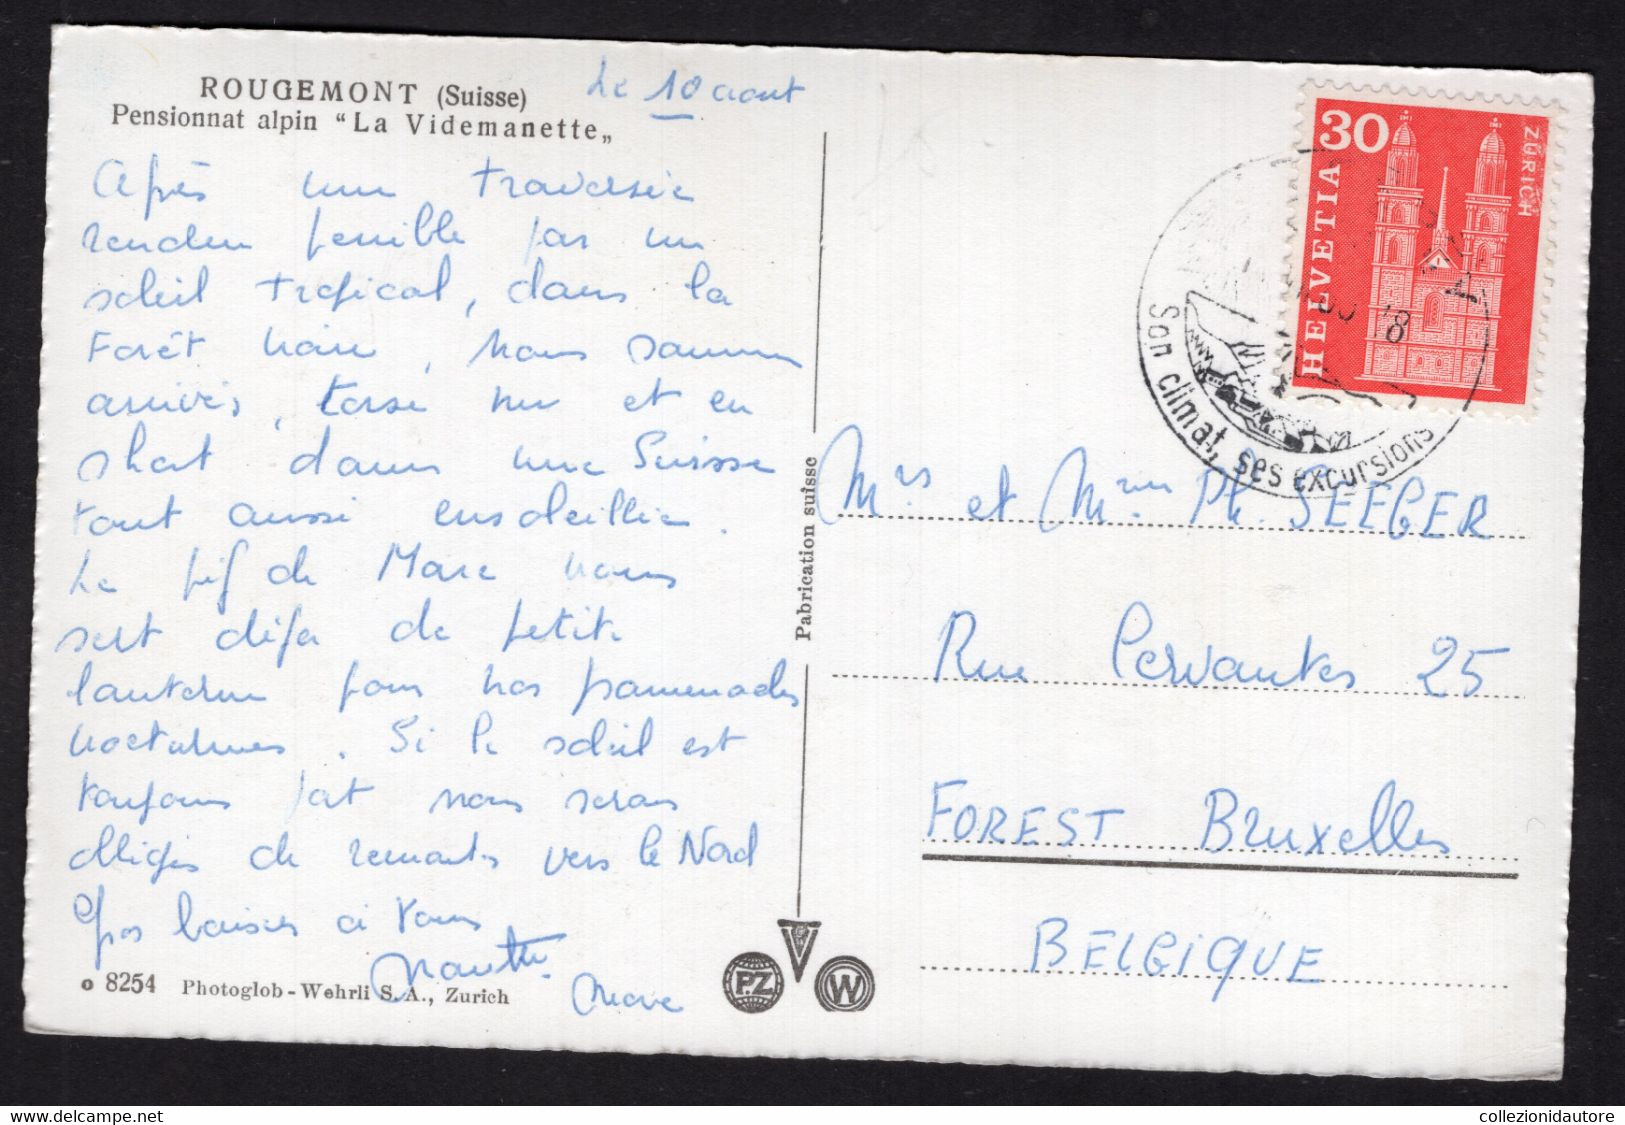 ROUGEMONT (Suisse)
Pensionnat alpin “La Videmanette„
Le 10 aout
Après une traversée
rendue penible par un
soleil tropical, dans la
Forêt Noire, nous sommes
arrivés, torse nu et en
short dans une Suisse
tout aussi ensoleillée.
Le pif de Marc nous
sert déjà de petite
lanterne pour nos promenades
nocturnes. Si le soleil est
toujours fort nous serons
obligés de remonter vers le Nord
Gros baisers à tous
Marc
8254 Photoglob-Wehrli S.A., Zurich
Fabrication suisse
P.Z
W
30
HELVETIA
ZÜRICH
18
Son climat, ses excursions
Mrs et Mme Ph. SEEGER
Rue Cervantes 25
FOREST Bruxelles
BELGIQUE
delcampe.net
collezionidautore